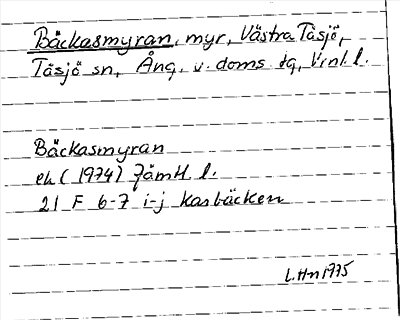 Bäckasmyran, myr, Västra Tåsjö,
Tåsjö sn, Ång. v. doms tg, Vrnl. l.
Bäckasmyran
ek (1974) Jämtl. l.
21 F 6-7 i-j Karbäcken
L.Hn 1975